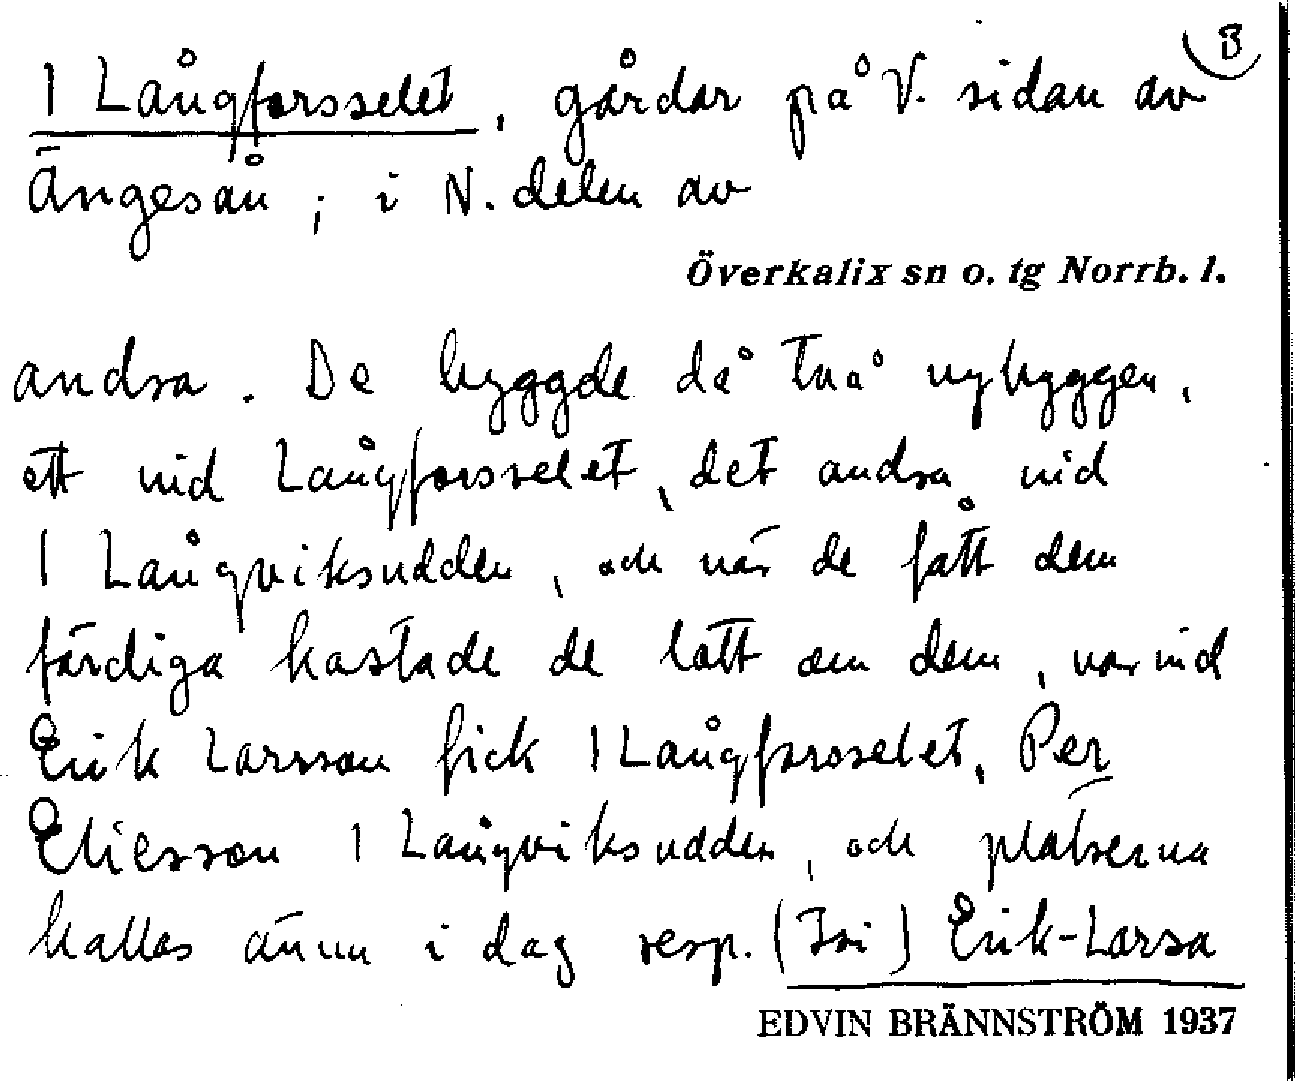 3
1 Långforsselet, gårdar på V. sidan av
Ängesån; i N. delen av
Överkalix sn o. tg Norrb. l.
andra. De byggde då två nybyggen,
ett vid Långforsselet, det andra vid
1 Långviksudden, och när de fått dem
färdiga kastade de lott om dem, varvid
Erik Larsson fick 1 Långforsselet, Per
Eliesson 1 Långviksudden, och platserna
kallas ännu i dag resp. (Isi) Erik-Larsa
EDVIN BRÄNNSTRÖM 1937